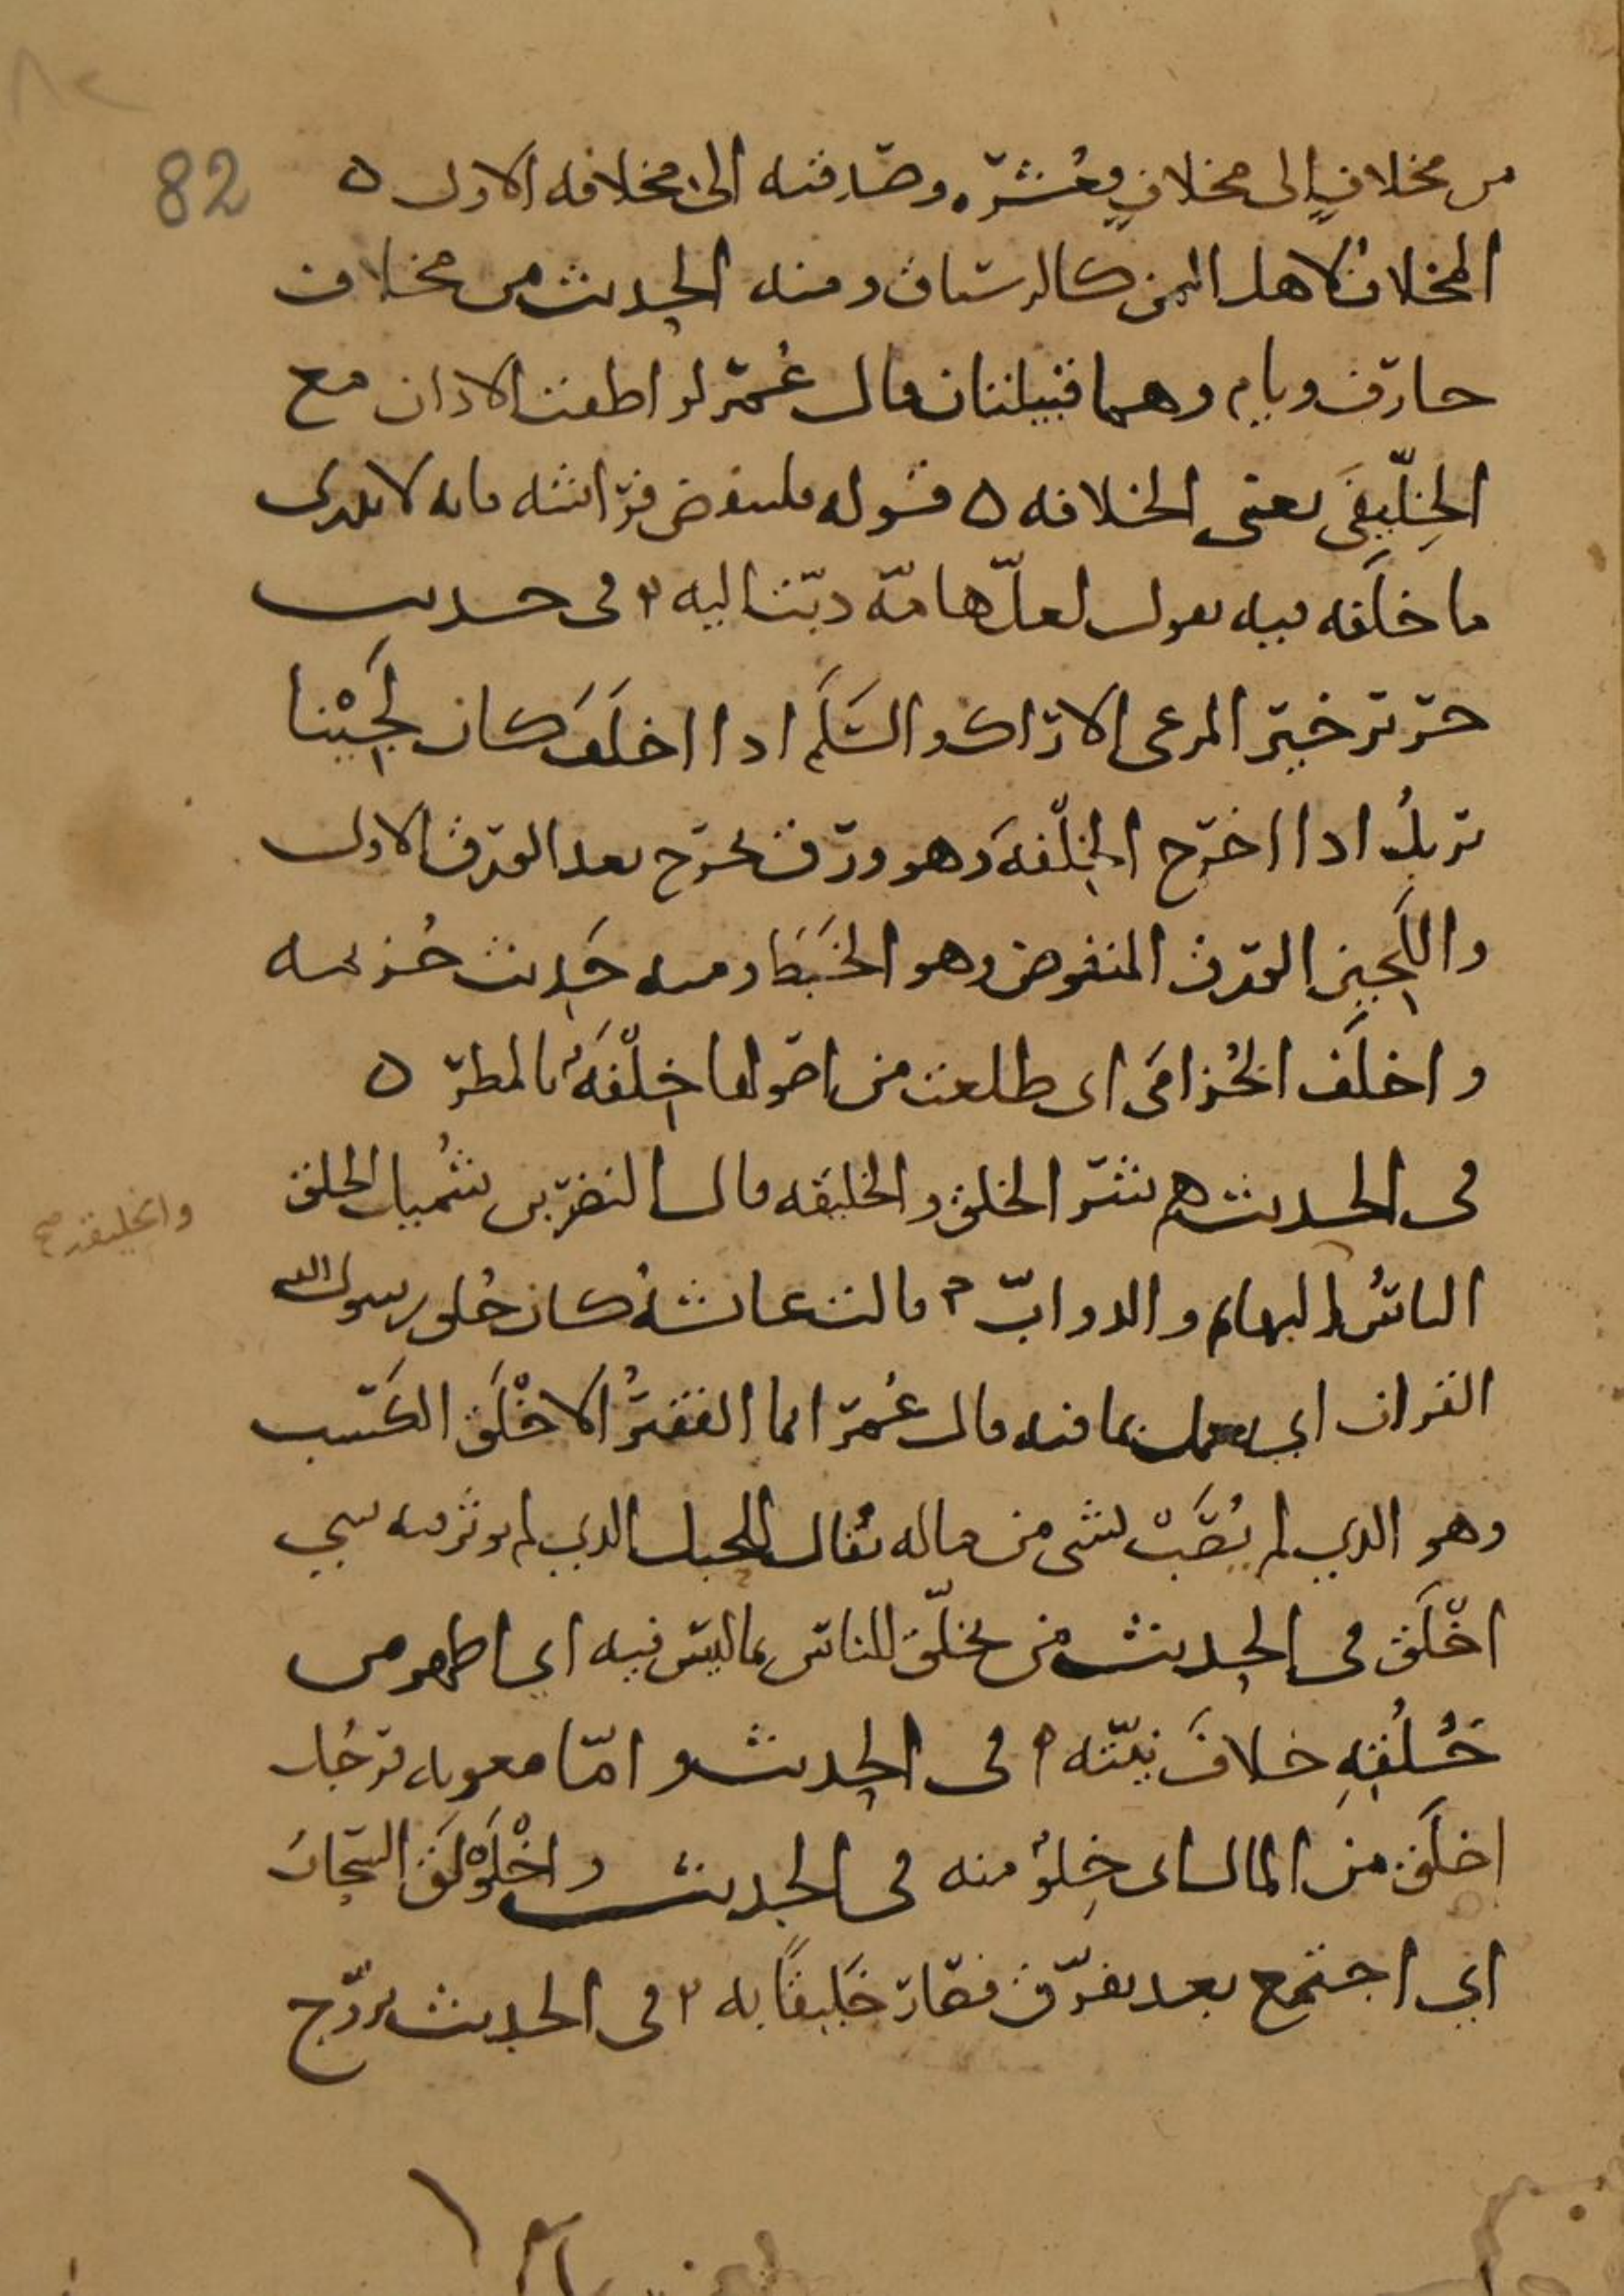 82
من مخلاف إلى مخلاف فعُشره وصدقته الى مخلافه الاول ه
المخلاف لاهل اليمن كالرستاق ومنه الحديث من مخلاف
خارف ويام وهما قبيلتان قال عُمر لو اطقت الاذان مع
الخِلّيفَى يعنى الخلافه ه قوله فلينفض فراشه فانه لا يدرى
ما خلَفه فيه يقول لعلّ هامّه دبّت اليه في حديث
جرير خير المرعى الاراك والسَلَم اذا اخلَفَ كان لَجِيْنا
تريدُ اذا اخرج الخِلْفَهَ وهو ورق يخرج بعد الورق الاول
واللَجين الورق المنفوض وهو الخَبَط ومنه حَديث خُزيمه
واخلَف الخُزامَى اى طلعت من اصولها خِلْفَهُ بالمطر ه
فى الحديث هم شر الخلق والخليقه قال النضر بن شُميل الخلق
والخليقة صح
الناسُ البهايم والدوابّ قالت عائشهُ كان خُلق رسول الله
القران اي يعمل بما فيه قال عُمر انما الفقيرُ الاخْلَق الكَسب
وهو الذي لم يُصَب بشى من ماله يُقال للجبل الذي لم يوثر فيه شي
اخْلَق فى الحديث من تخلّق للناس بما ليس فيه اي اظهر من
خُلُقِهِ خلافَ نيّته فى الحديث و امّا معويه فرَجُل
اخلَق من المال اى خِلوٌ منه فى الحديث واخْلَوْلَق السحابُ
اي اجتمع بعد تفرّق فصار خَليقًا به فى الحديث تزوّج